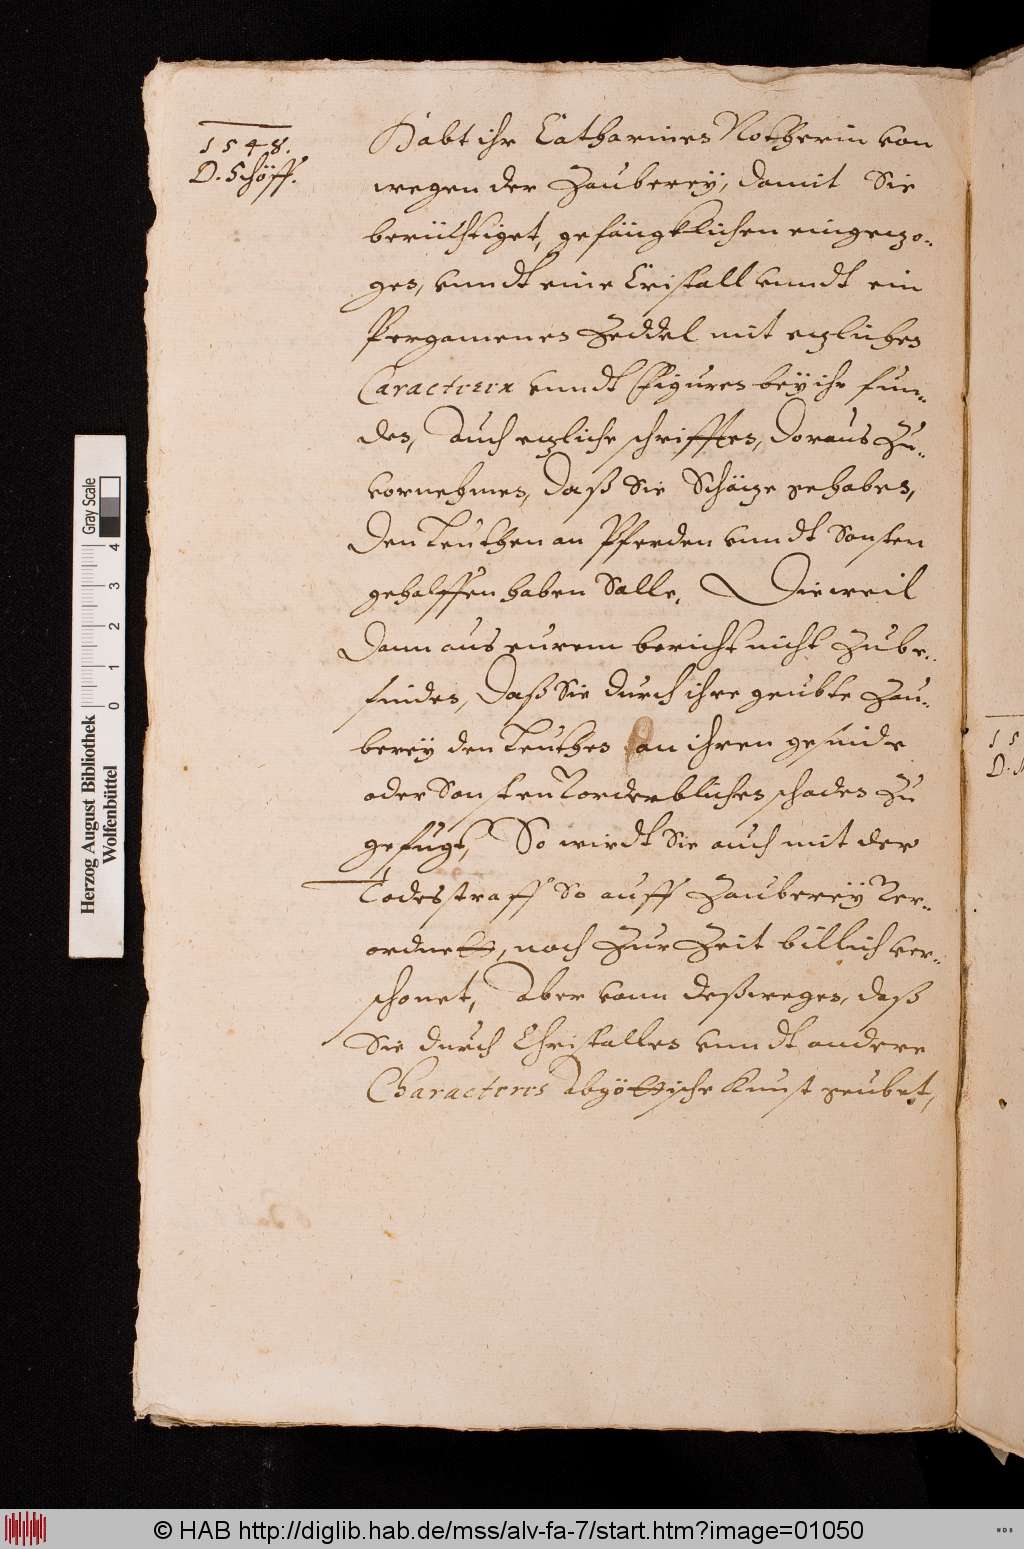 1548.
D. Schöff.
Habt ihr Catharinen Notherin von
wegen der Zauberey, damit Sie
berüchtiget, gefängklichen eingezo-
gen, vnndt eine Cristall vnndt ein
Pergamenen Zeddel mit ezlichen
Caractern vnndt Figuren bey ihr fun-
den, Auch ezliche schrifften, Doraus Zu-
vornehmen, Daß Sie Schäze gehaben,
Den Leuthen an Pferden vnndt Sonsten
geholffen haben Solle. Dieweil
Dann aus eurem bericht nicht Zube-
finden, Daß Sie durch ihre geubte Zau-
berey den Leuthen an ihren gesinde
oder Sonsten Vorderblichen schaden Zu
gefugt, So wirdt Sie auch mit der
Todesstraff So auff Zauberey Ver-
ordnett, noch Zur Zeit billich ver-
schonet, Aber vonn deßwegen, daß
Sie durch Christallen vnndt andere
Characteres Abgöttische Kunst geubet,
15
D.
Herzog August Bibliothek
Wolfenbüttel
0 1 2 3 4
Gray Scale
© HAB http://diglib.hab.de/mss/alv-fa-7/start.htm?image=01050